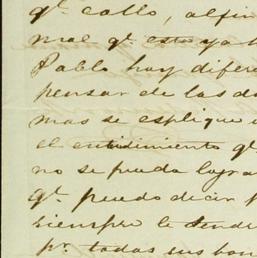 qᵉ callo, al fin
mal qᵉ estaya
Pablo hay difere
pensar de las do
mas se esplique
el entidimiento qᵉ
no se pueda logra
qᵉ puedo decir
siempre le tendre
pʳ todas sus bon